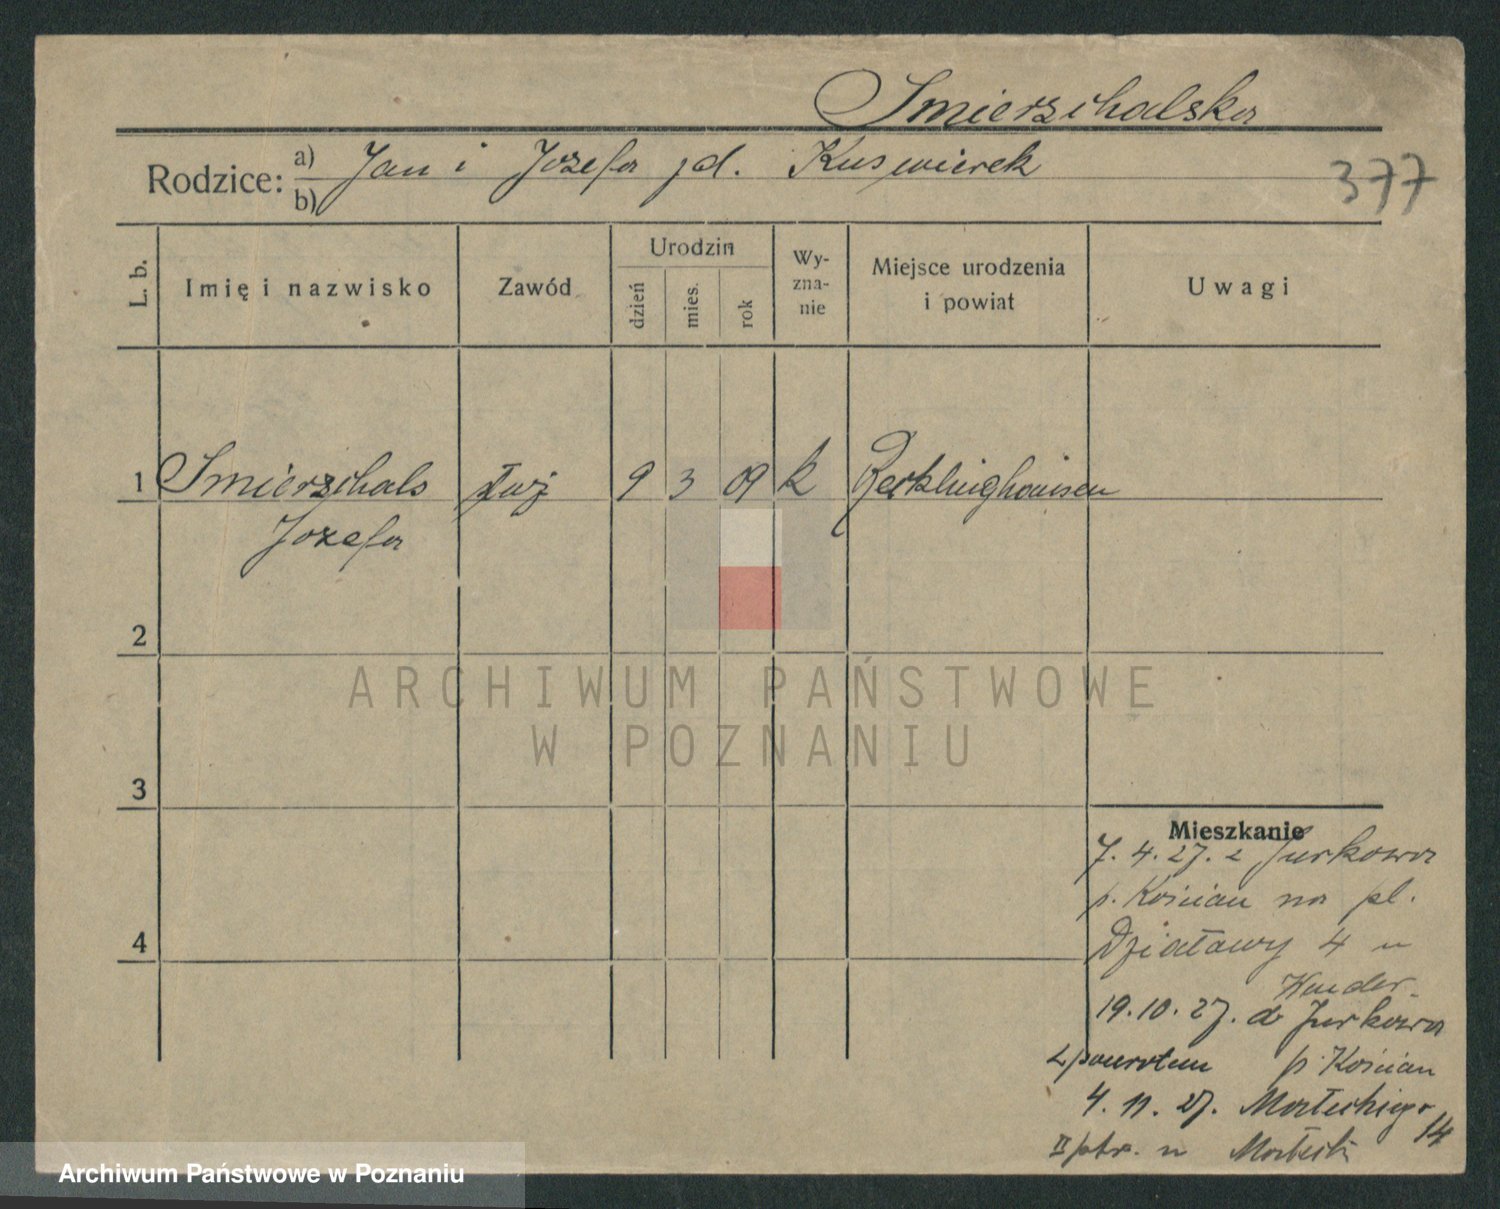 Smierzchalska
Rodzice: a) Jan i Józefa
b)
377
L. b.
Imię i nazwisko
Zawód
Urodzin
dzień
mies.
rok
Wy-
zna-
nie
Miejsce urodzenia
i powiat
Uwagi
1 Smierzchals 9 3 09 k Recklinghausen
Józefa
2
3
4
Mieszkanie
7. 4. 27. z Jurkowa
p. Kościan na pl.
Działowy 4 u
19.10.27. do Jurkowa
z powrotem p. Kościan
4. 11. 27. 14
II ptr. u
ARCHIWUM PAŃSTWOWE
W POZNANIU
Archiwum Państwowe w Poznaniu